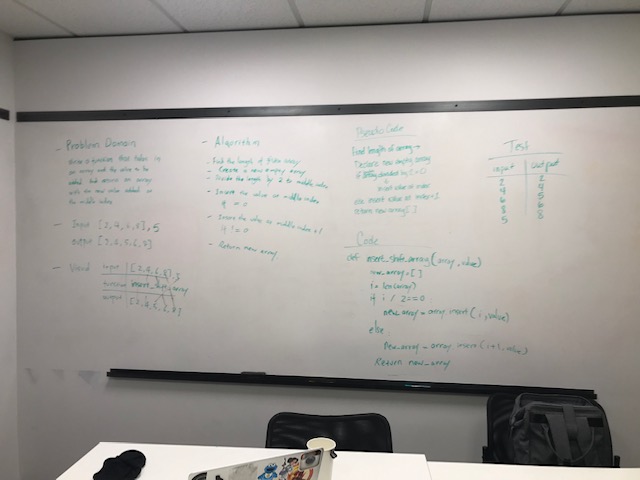 - Problem Domain
Write a function that takes in
an array and the value to be
added and returns an array
with the new value added in
the middle index
- Input [2,4,6,8],5
output [2,4,5,6,8]
- Visual
input [2,4,6,8],5
function insert_shift_array
output [2,4,5,6,8]
- Algorithm
- Find the length of given array
- Create a new empty array
- Divide the length by 2 to middle index
- Insert the value on middle index
if = 0
- Insert the value to middle index +1
if != 0
- Return new array
Pseudo Code
Find length of array
Declare new empty array
if divided by
insert value at index
else insert value at index+1
return new array[]
Code
def insert_shift_array(array,value)
new_array=[]
i=len(array)
if i / 2==0:
new_array=array insert(i,value)
else:
new_array=array insert(i+1,value)
Return new_array
Test
input output
2 2
4 4
6 5
8 6
5 8